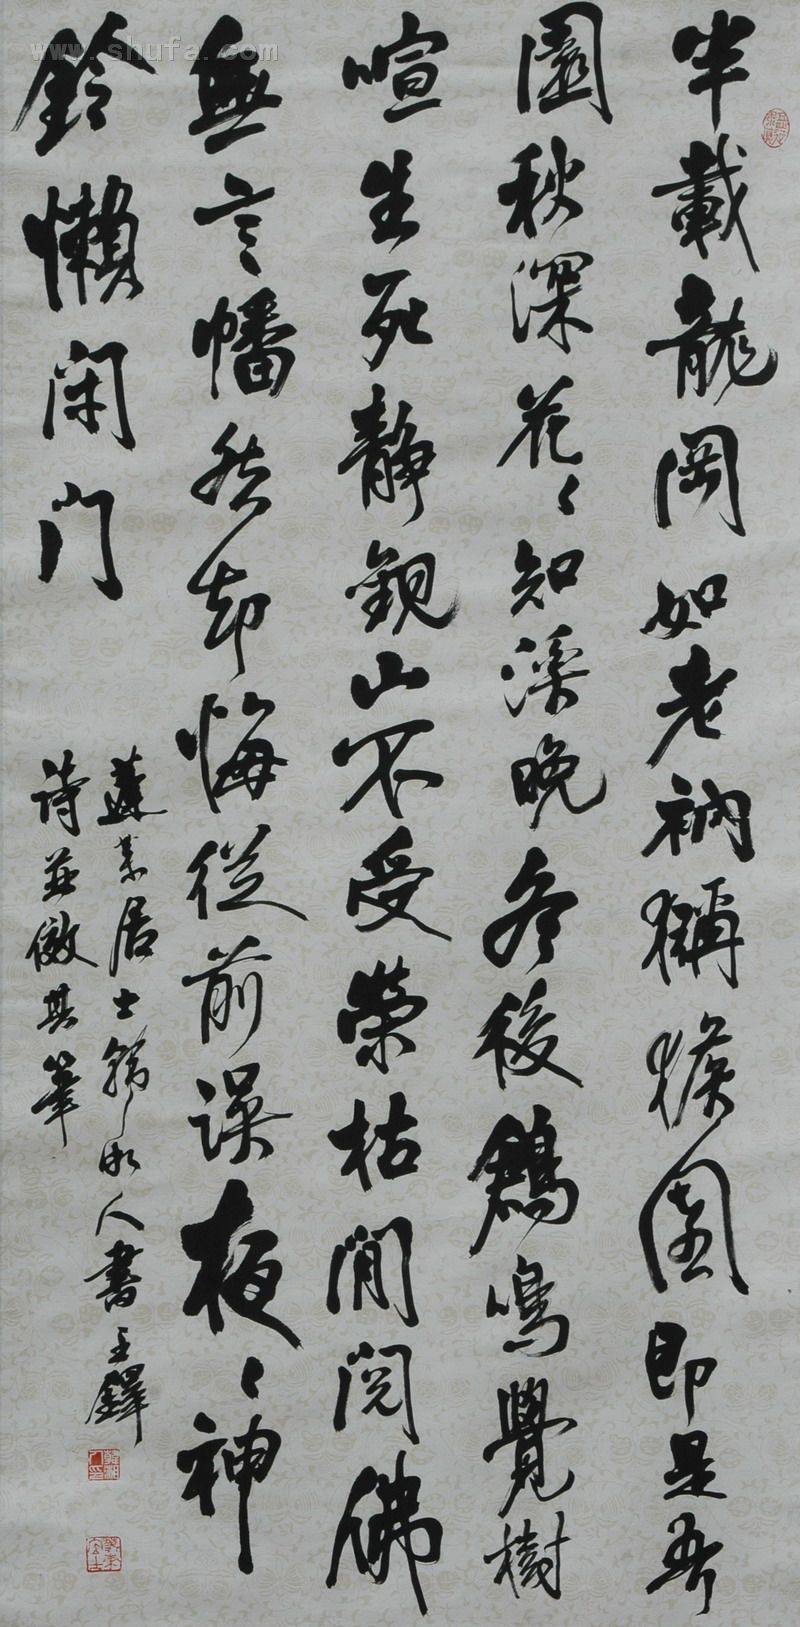 半載龍岡如老衲獼猴園即是吾
園秋深花〻知溪晚冬後鶴鳴覺樹
喧生死靜觀山不受榮枯閒閱佛
無言幡然却悔從前誤夜〻神
鈴懶闭门
蓬莱居士韓 人書王鐸
詩并倣其筆
www.shufa.com